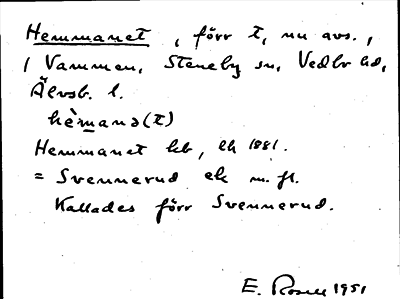 Hemmanet, förr t, nu avs.,
/ Vammen, Steneby sn, Vedbo hd,
Älvsb. l.
hèmanə(t)
Hemmanet hb, ek 1881.
= Svennerud ek m. fl.
Kallades förr Svennerud.
E. Rosell 1951